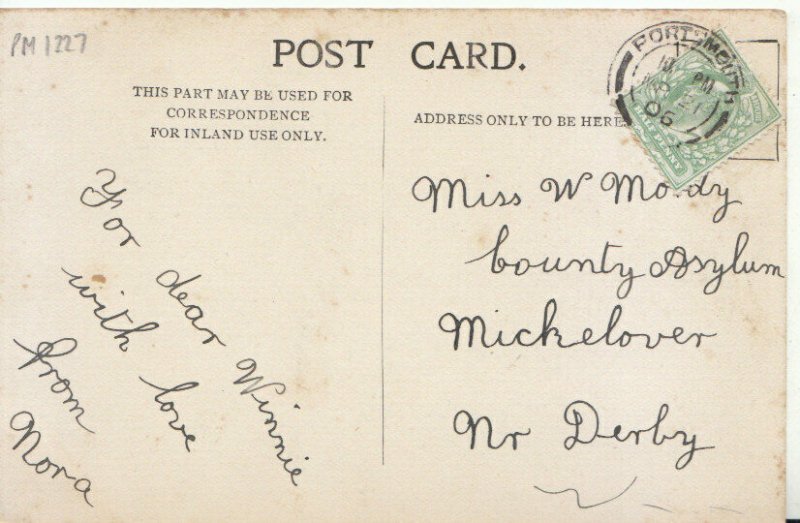 PM 1227
POST CARD.
THIS PART MAY BE USED FOR
CORRESPONDENCE
FOR INLAND USE ONLY.
ADDRESS ONLY TO BE HERE
PORTSMOUTH
PM
06
For dear Winnie
with love
from
Nora
Miss W
County Asylum
Mickelover
Nr Derby